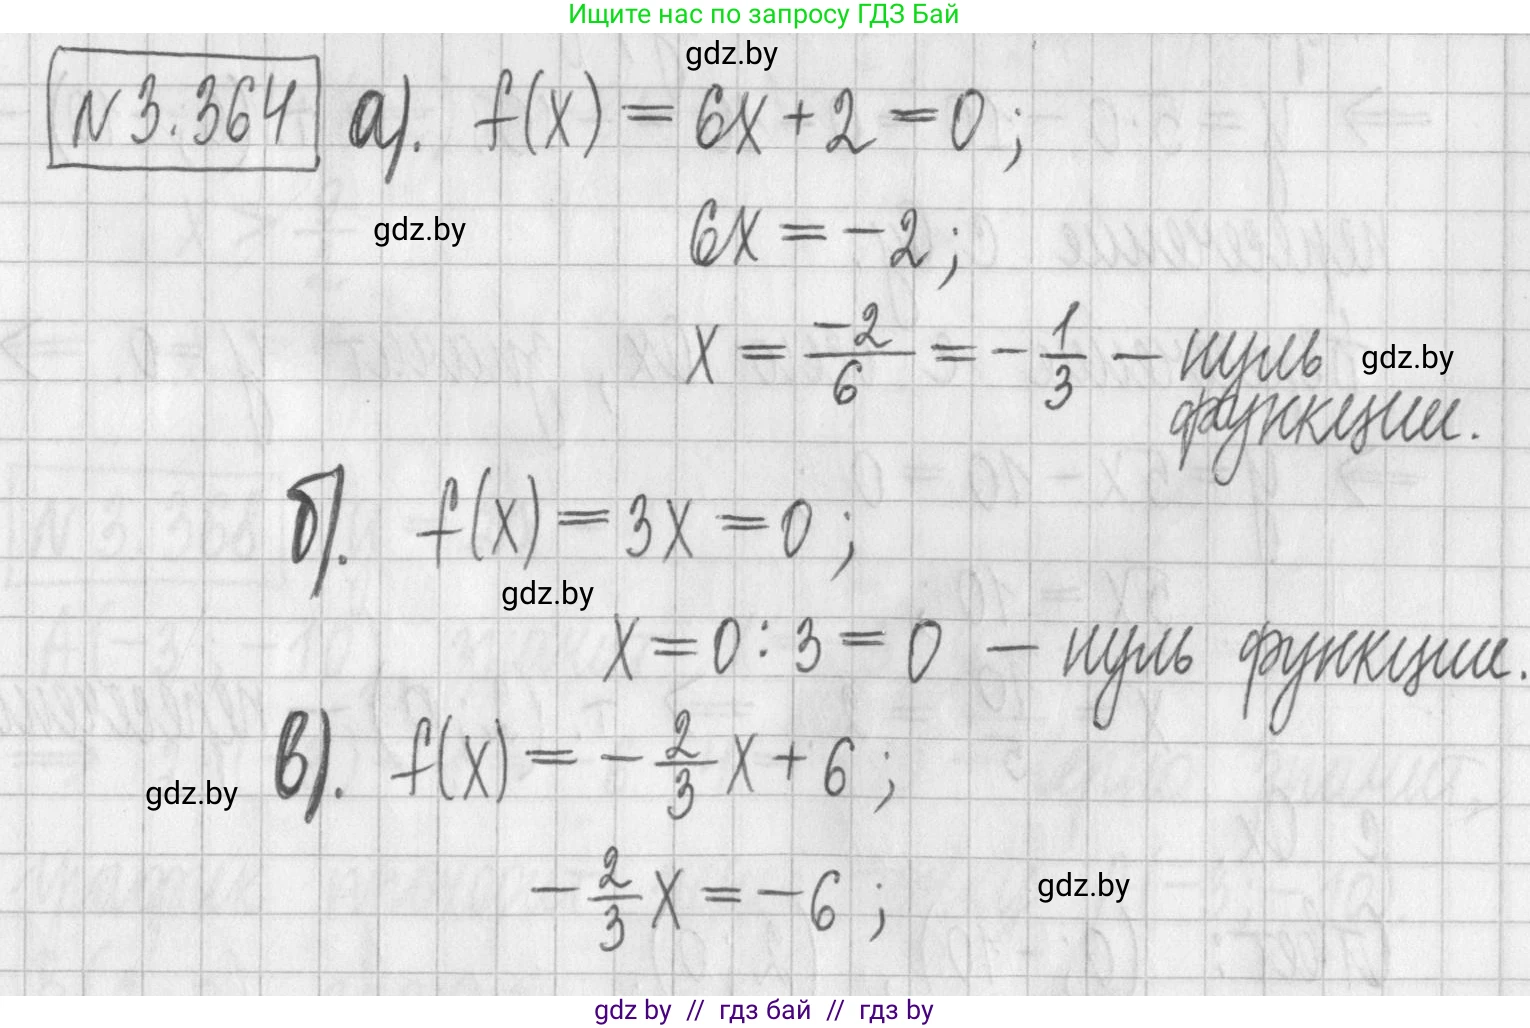 Ищите нас по запросу ГДЗ Бай
gdz.by
N 3.364 а). f(x) = 6x + 2 = 0;
gdz.by
6x = -2;
x = -2/6 = -1/3 - нуль gdz.by
функции.
б). f(x) = 3x = 0;
gdz.by
x = 0 : 3 = 0 - нуль функции.
в). f(x) = -2/3 x + 6;
gdz.by
-2/3 x = -6;
gdz.by
gdz by // гдз бай // гдз by